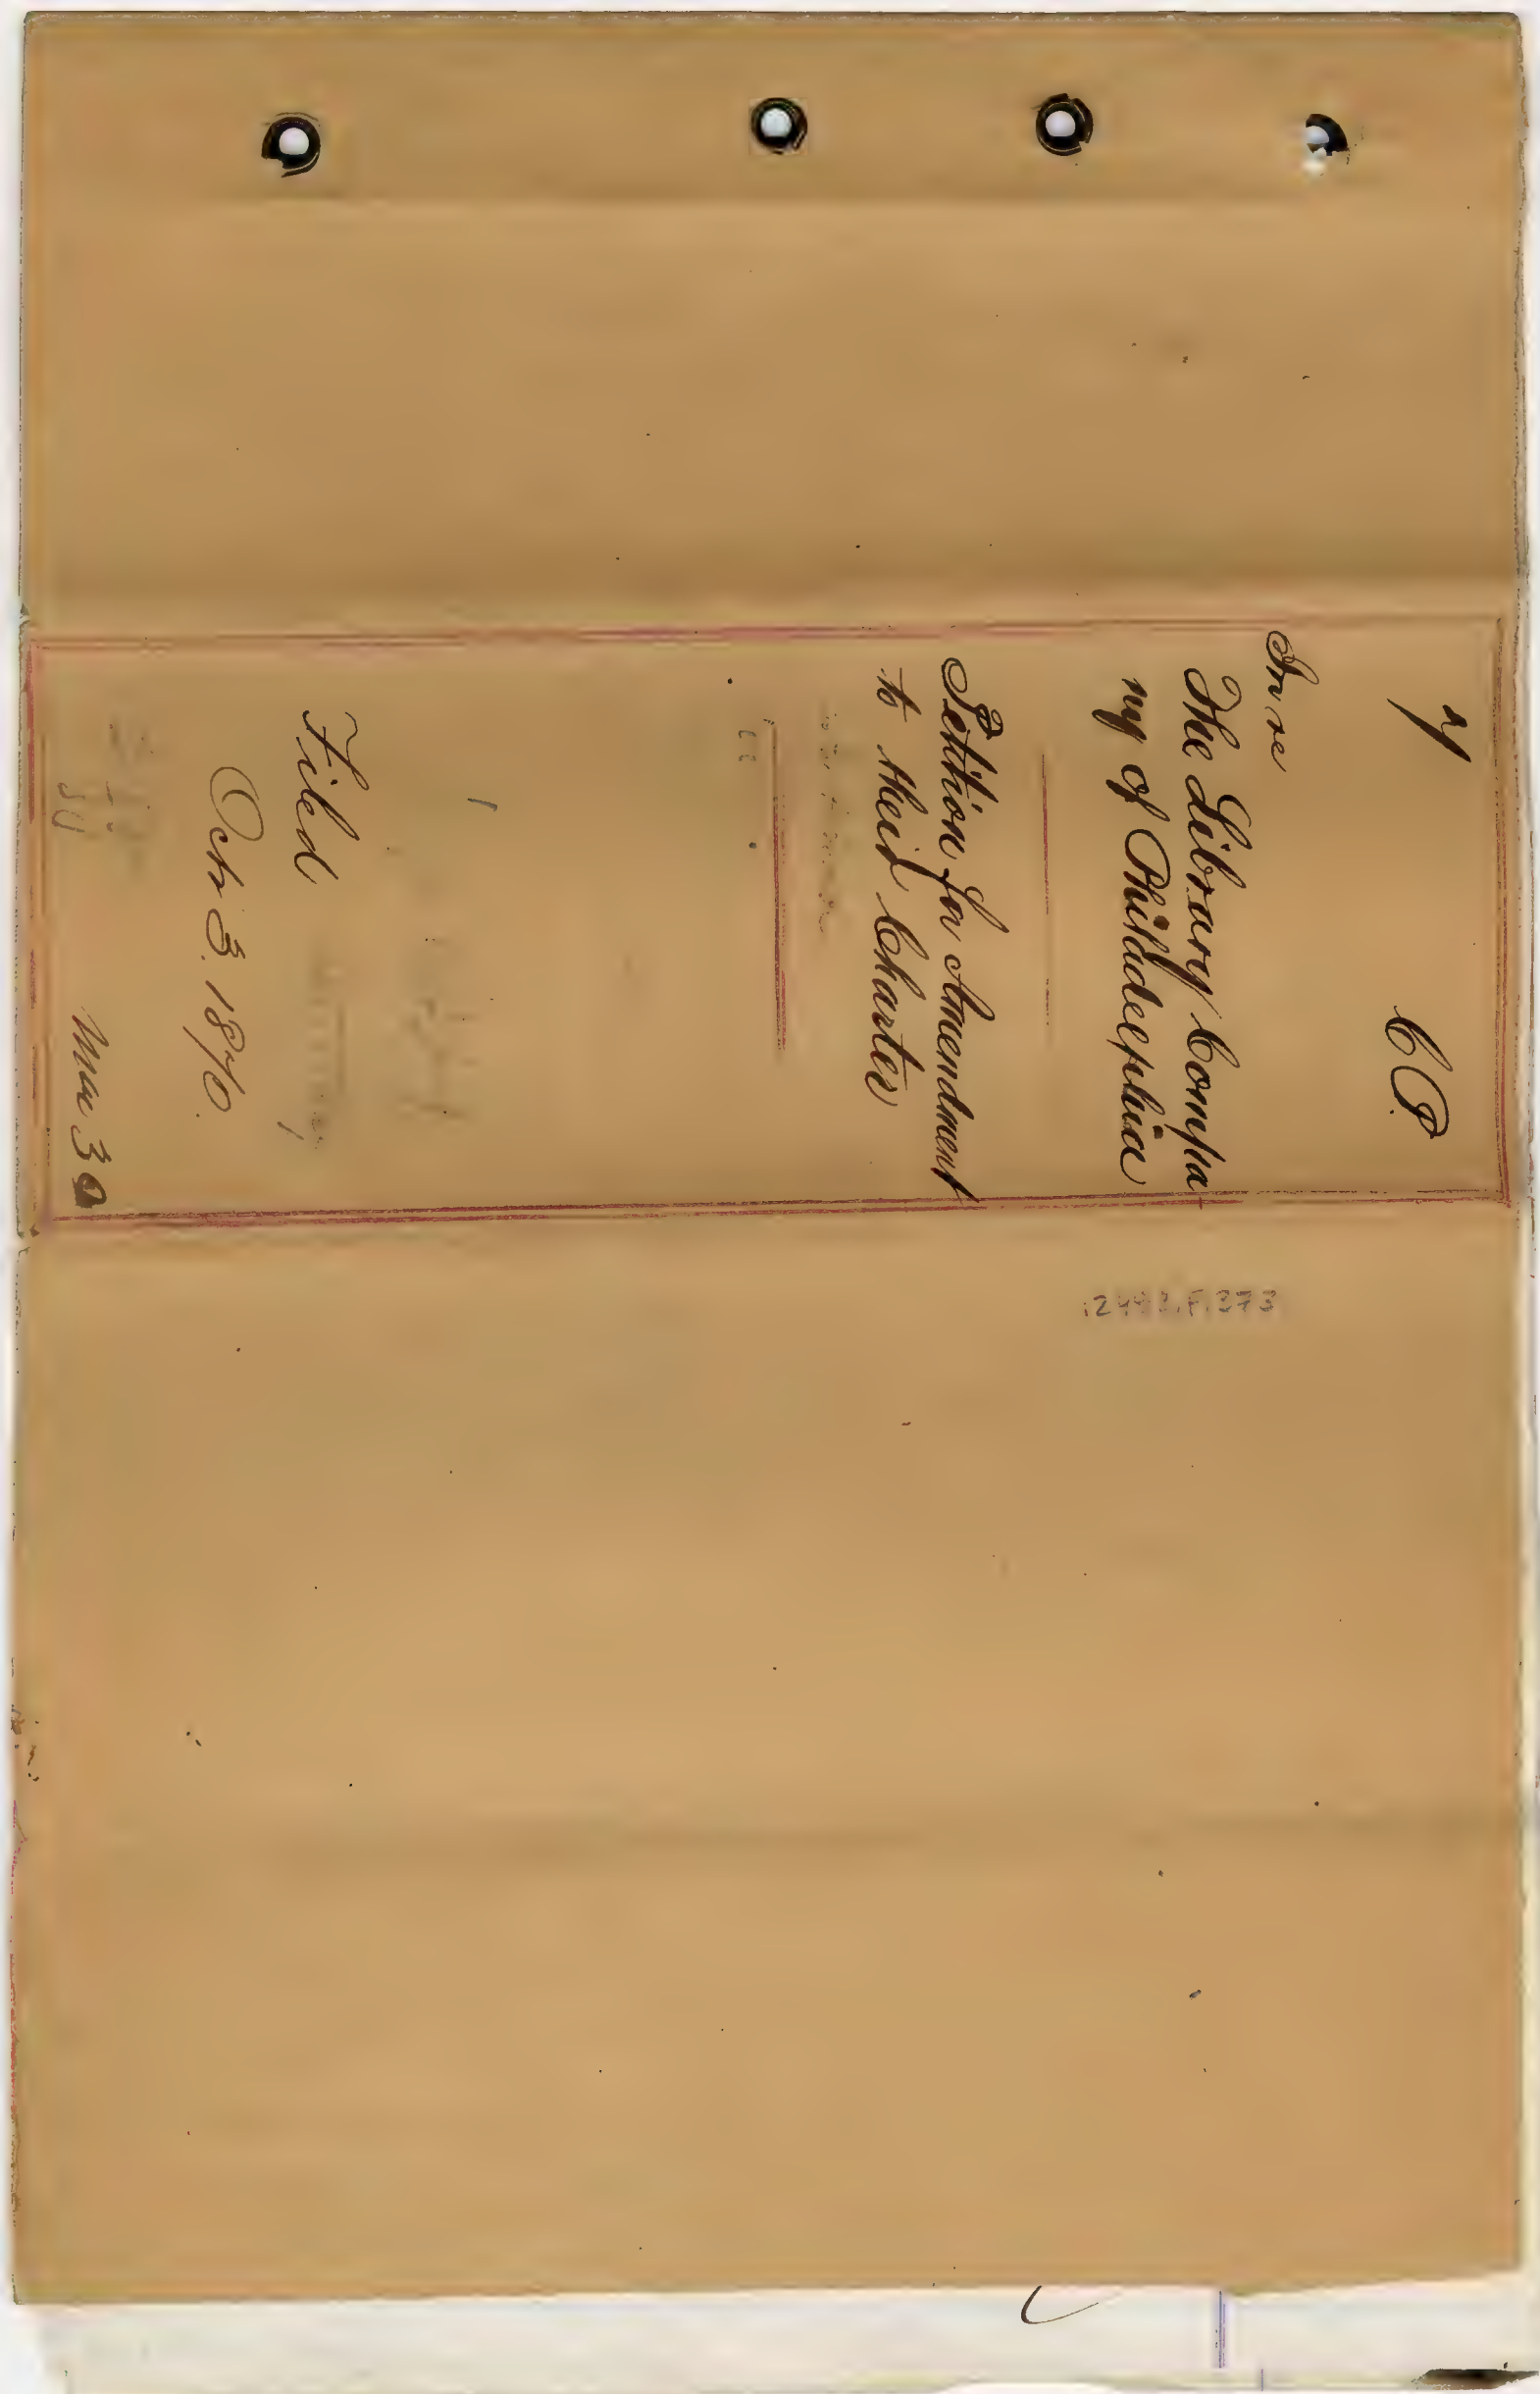 C.P.
In re
The Library Compa
ny of Philadelphia
Petition for Amendment
to their Charter
Filed
Oct 3. 1876.